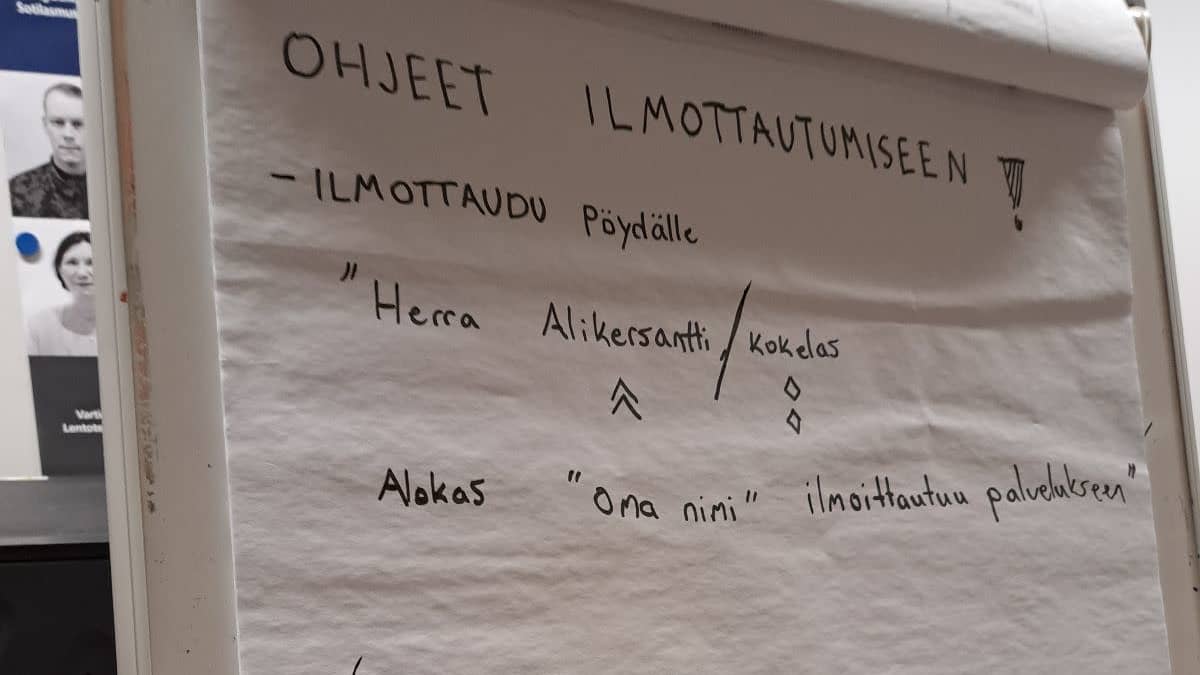 Sotilasmu
OHJEET ILMOTTAUTUMISEEN !
- ILMOTTAUDU Pöydälle
"Herra Alikersantti / Kokelas
Alokas "Oma nimi" ilmoittautuu palvelukseen"
Varti
Lentote